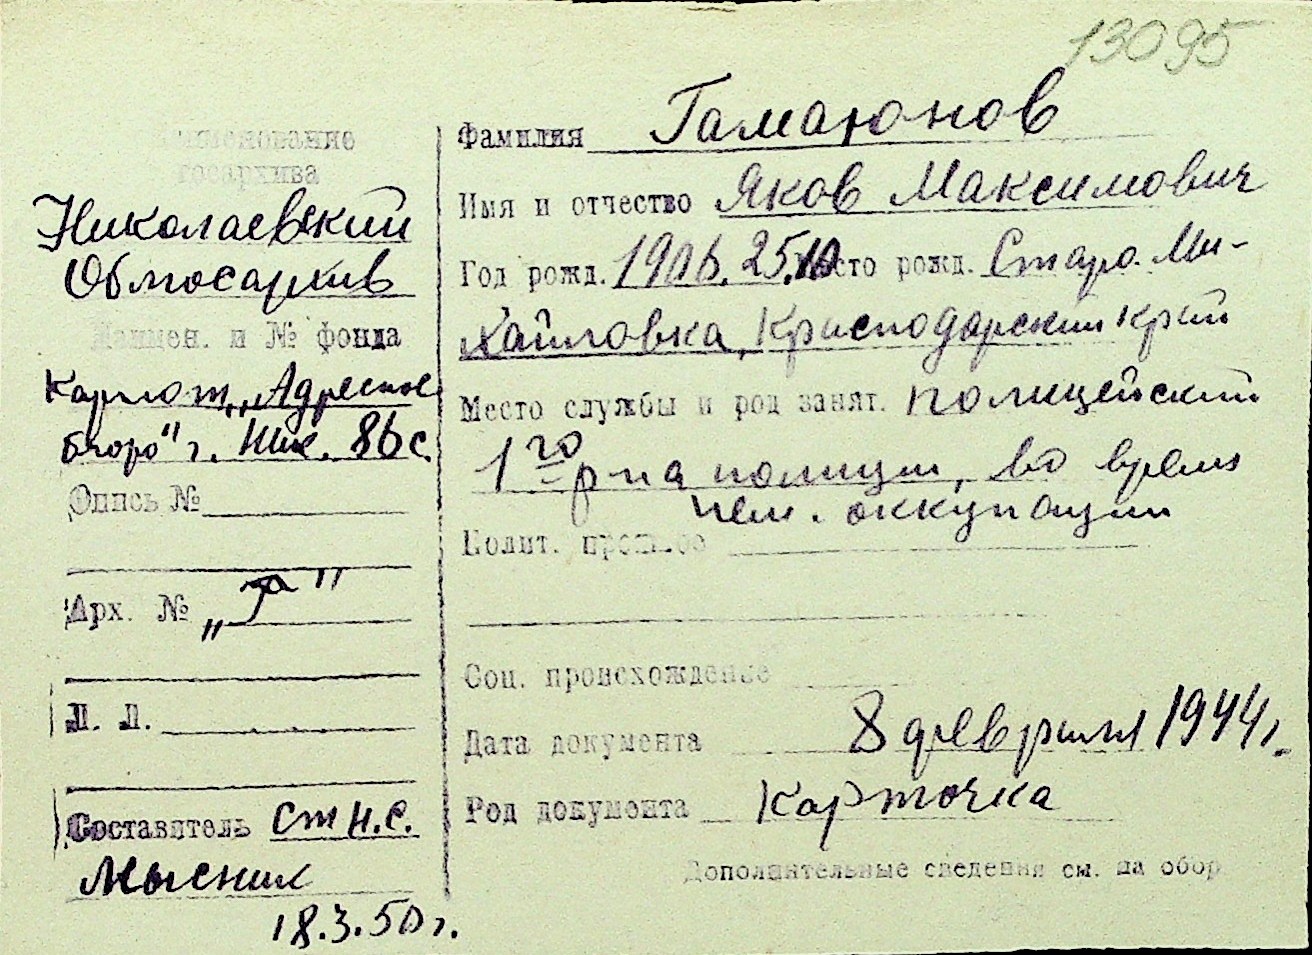 13095
Наименование
госархива
Николаевский
Облгосархив
Наимен. и № фонда
Картот. „Адресное
бюро" г. Ник. 86 с.
Опись №
Арх. № „Г"
Л. Л.
Составитель ст н.с.
Мысник
18.3.50 г.
Фамилия Гамаюнов
Имя и отчество Яков Максимович
Год рожд. 1906. 25.10 Место рожд. Старо. Ми-
хайловка, Краснодарский край
Место службы и род занят. полицейский
1го р-на полиции, во время
нем. оккупации
Полит. прошлое
Соц. происхождение
Дата документа 8 февраля 1944 г.
Род документа Карточка
Дополнительные сведения см. на обор